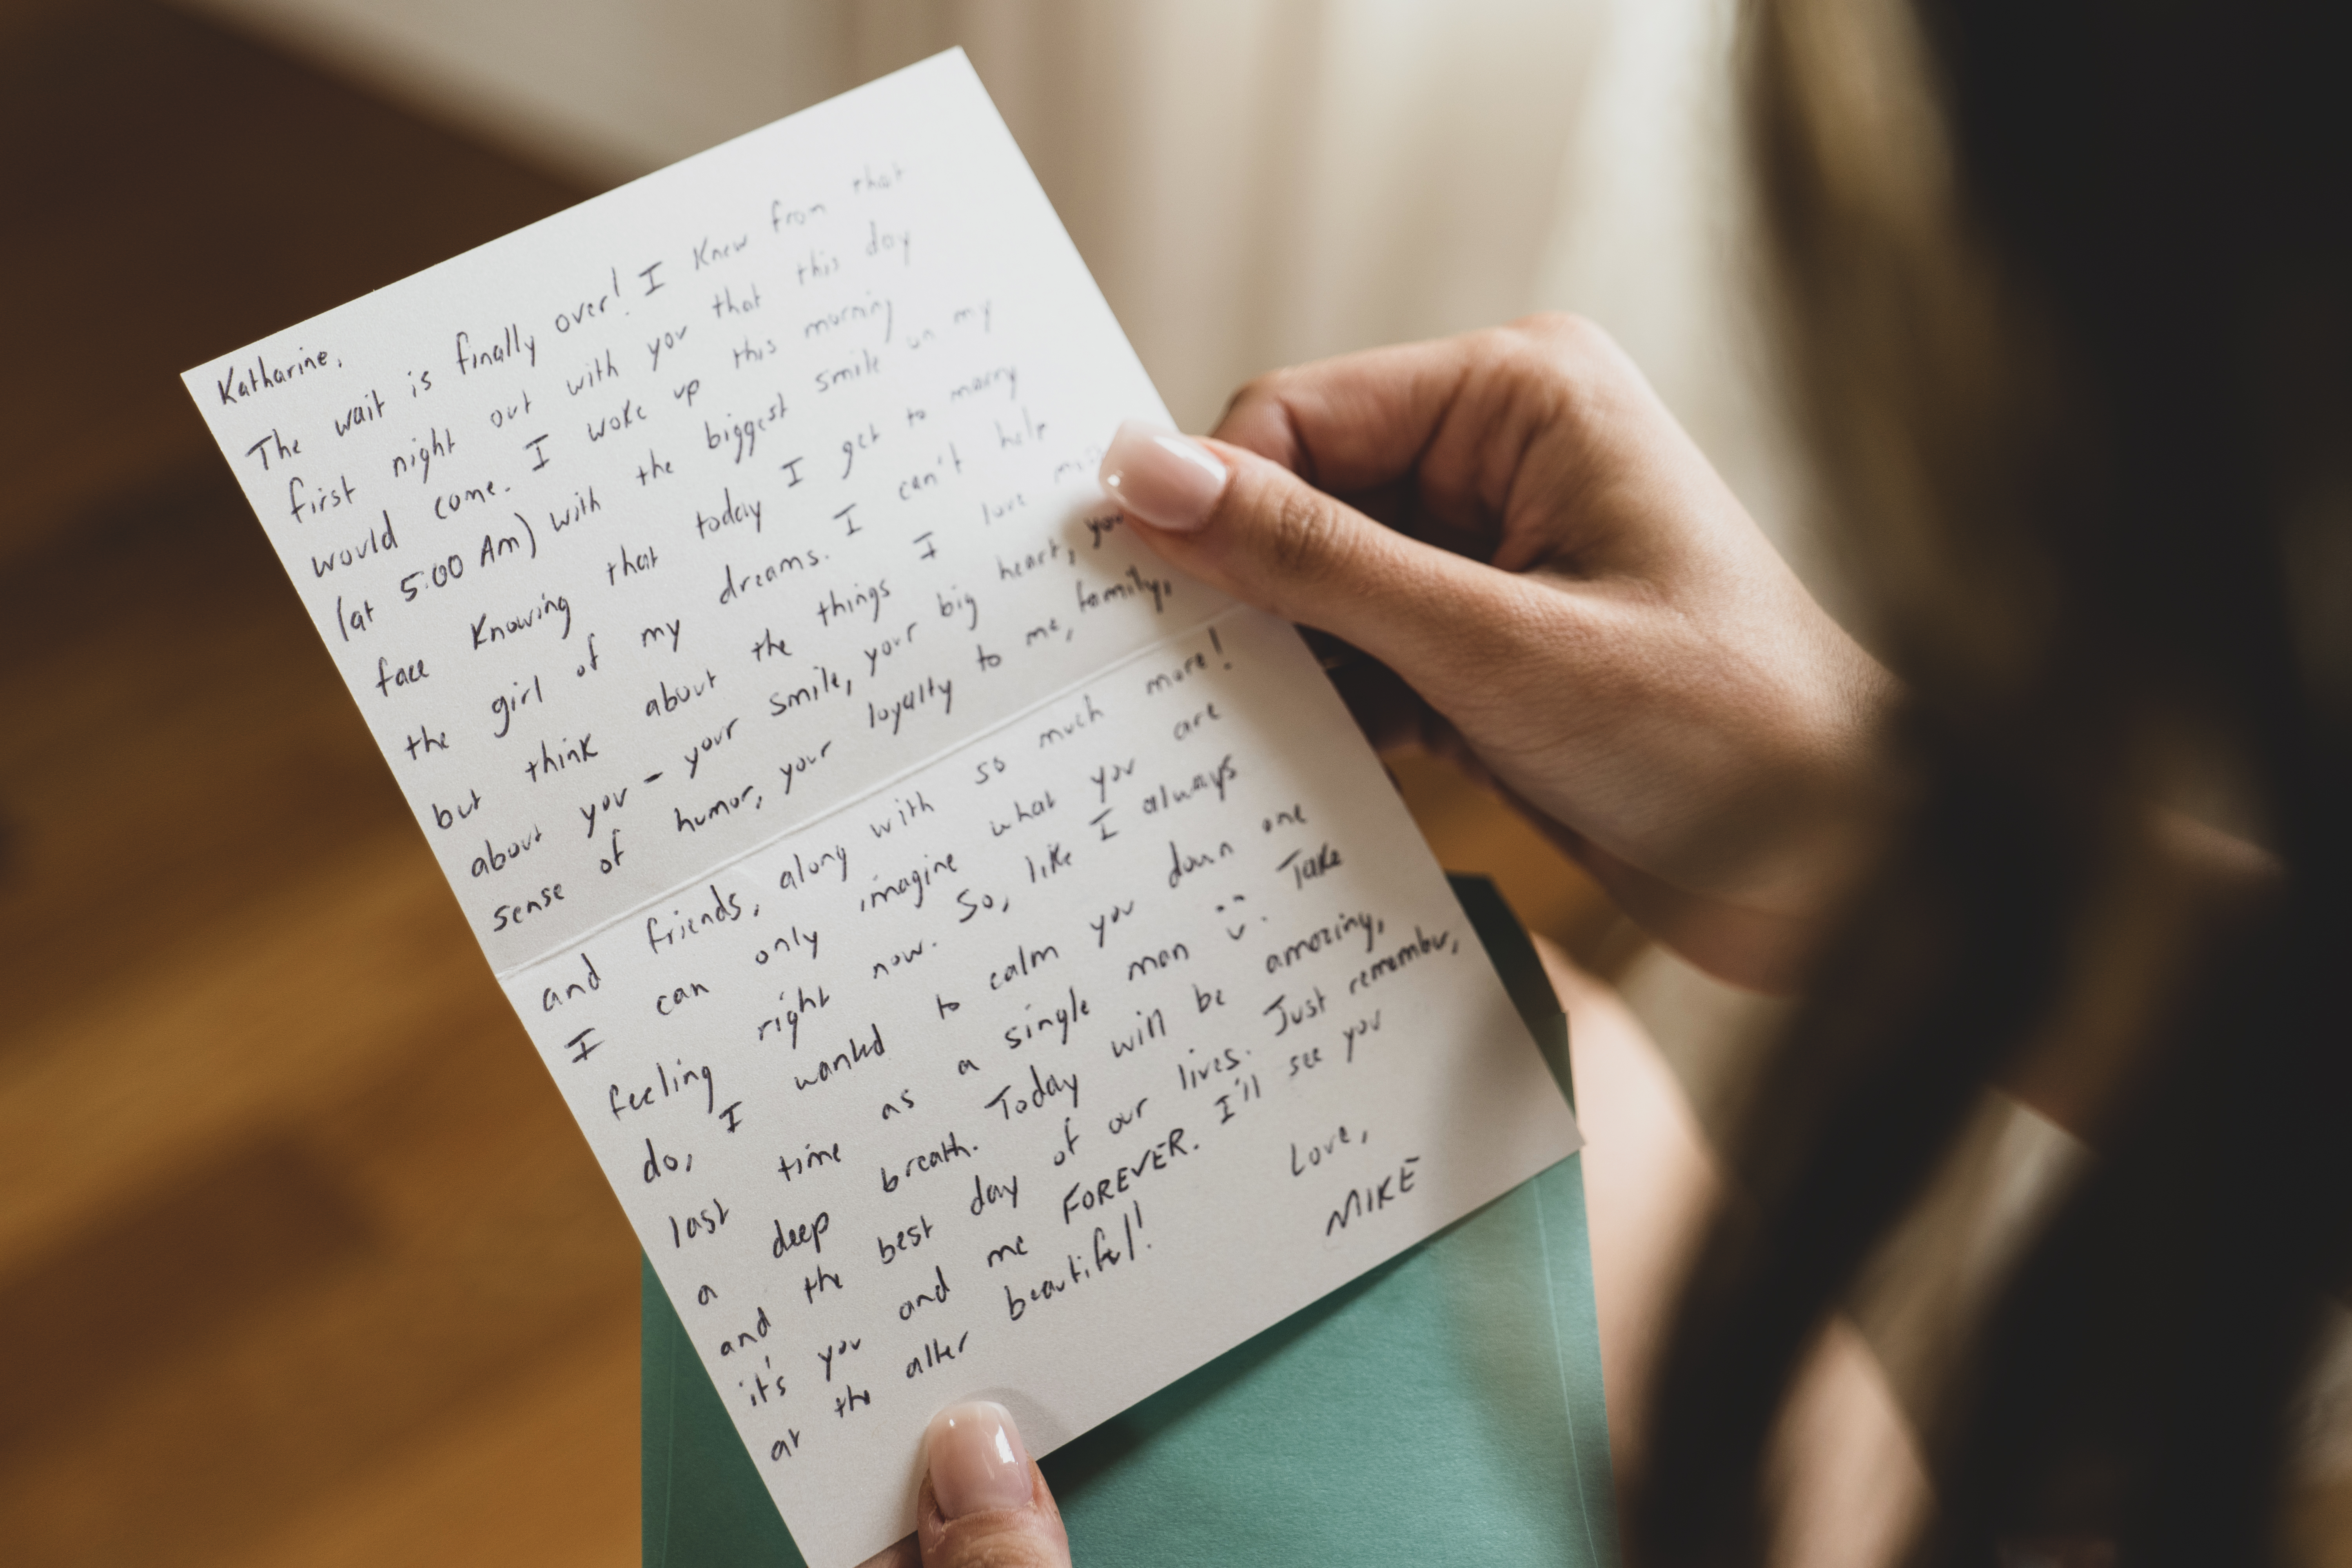 Katharine,
The wait is finally over! I knew from that
first night out with you that this day
would come. I woke up this morning
(at 5:00 Am) with the biggest smile on my
face knowing that today I get to marry
the girl of my dreams. I can't help
but think about the things I love
about you - your smile, your big heart, your
sense of humor, your loyalty to me, family,
and friends, along with so much more!
I can only imagine what you are
feeling right now. So, like I always
do, I wanted to calm you down one
last time as a single man. Take
a deep breath. Today will be amazing,
and the best day of our lives. Just remember,
it's you and me FOREVER. I'll see you
at the alter beautiful!
Love,
MIKE